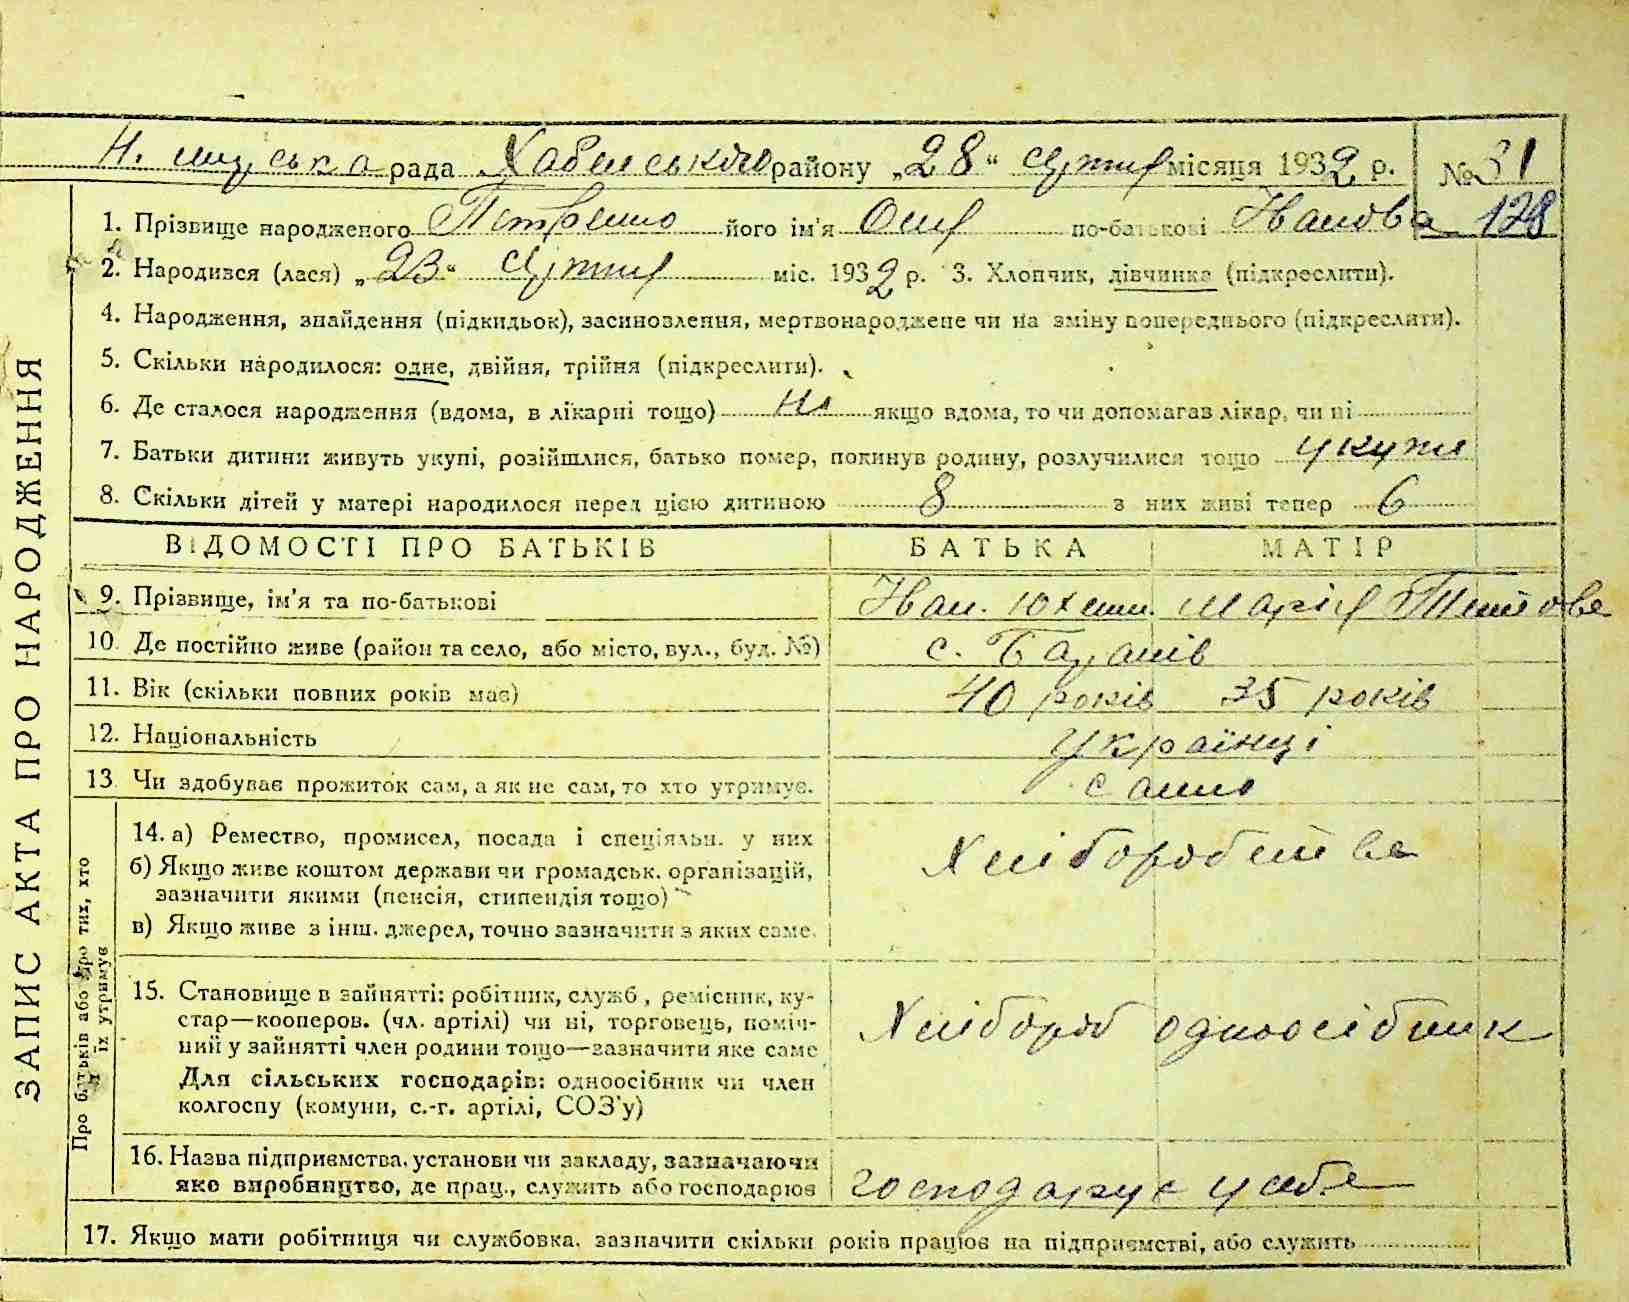 рада Хабенського району „28“ місяця 1932 р. № 31
1. Прізвище народженого Петренко його ім'я по-батькові Іванова 128
2. Народився (лася) „23“ міс. 1932 р. 3. Хлопчик, дівчинка (підкреслити).
4. Народження, знайдення (підкидьок), засиновлення, мертвонароджене чи на зміну попереднього (підкреслити).
5. Скільки народилося: одне, двійня, трійня (підкреслити).
6. Де сталося народження (вдома, в лікарні тощо) ні якщо вдома, то чи допомагав лікар, чи ні
7. Батьки дитини живуть укупі, розійшлися, батько помер, покинув родину, розлучилися тощо
8. Скільки дітей у матері народилося перед цією дитиною 8 з них живі тепер 6
ВІДОМОСТІ ПРО БАТЬКІВ БАТЬКА МАТІР
9. Прізвище, ім'я та по-батькові Іван. Юхим. Марія
10. Де постійно живе (район та село, або місто, вул., буд. №) с.
11. Вік (скільки повних років має) 40 років 35 років
12. Національність українці
13. Чи здобуває прожиток сам, а як не сам, то хто утримує. само
14. а) Ремество, промисел, посада і спеціяльн. у них
Хліборобства
б) Якщо живе коштом держави чи громадськ. організацій,
зазначити якими (пенсія, стипендія тощо)
в) Якщо живе з інш. джерел, точно зазначити з яких саме.
15. Становище в зайнятті: робітник, служб., ремісник, ку-
стар—кооперов. (чл. артілі) чи ні, торговець, поміч-
Хлібороб одноосібник
ний у зайнятті член родини тощо—зазначити яке саме
Для сільських господарів: одноосібник чи член
колгоспу (комуни, с.-г. артілі, СОЗ'у)
16. Назва підприємства, установи чи закладу, зазначаючи
яке виробництво, де прац., служить або господарює господарує у себе
17. Якщо мати робітниця чи службовка, зазначити скільки років працює на підприємстві, або служить
ЗАПИС АКТА ПРО НАРОДЖЕННЯ
Про батьків або про тих, хто
їх утримує